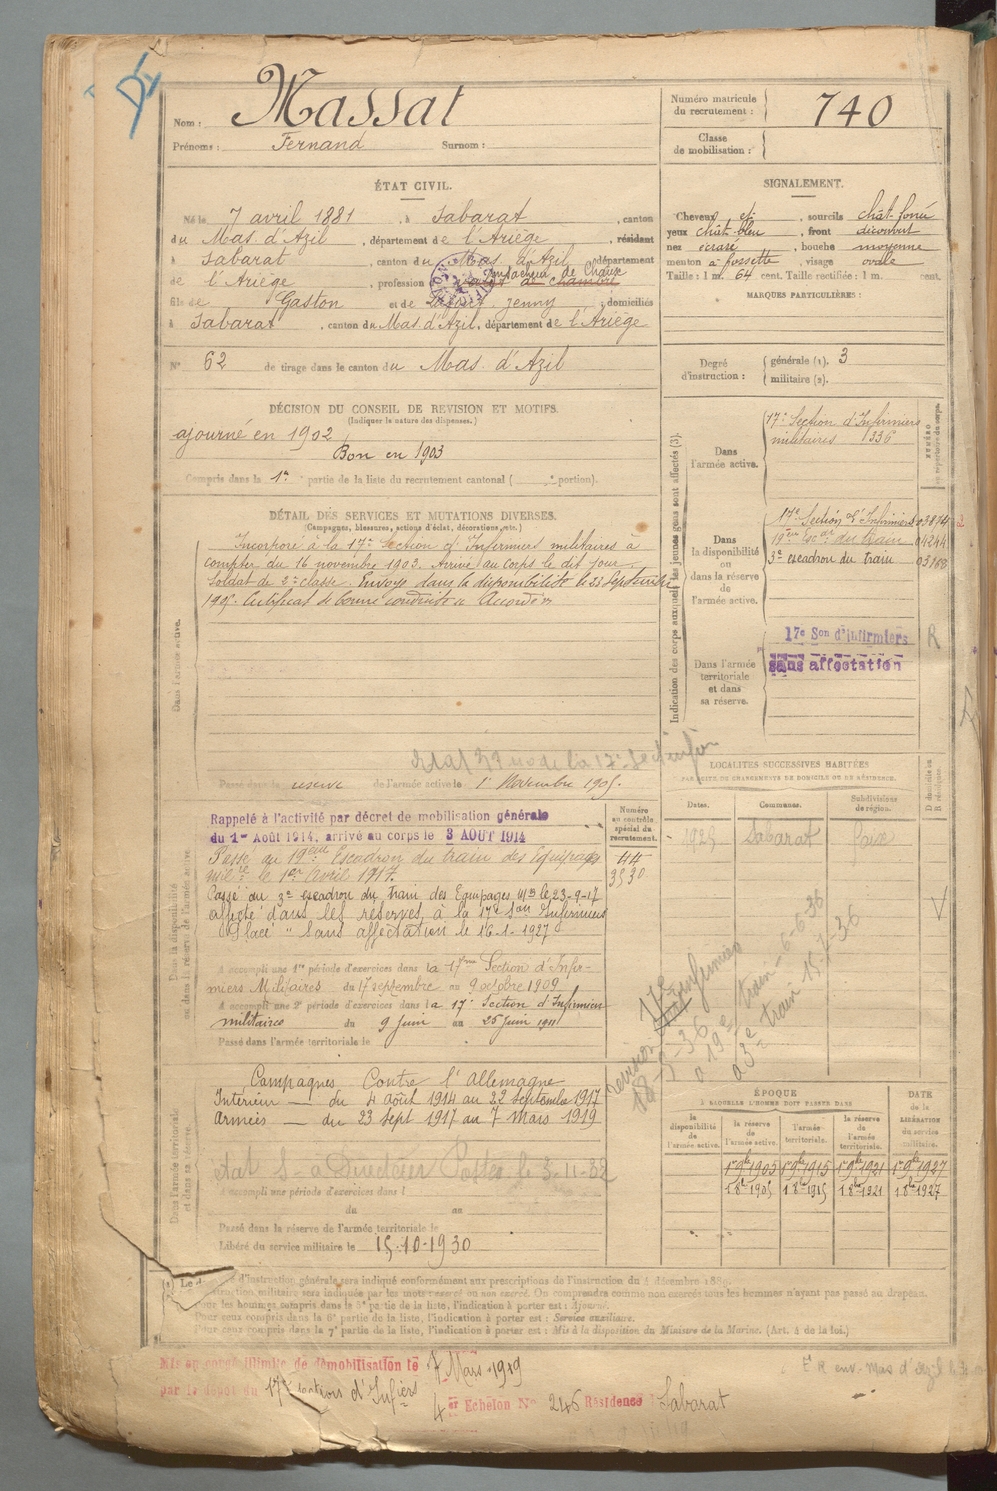 Nom : Massat
Prénoms : Fernand Surnom :
Numéro matricule
du recrutement : 740
Classe
de mobilisation :
ÉTAT CIVIL.
Né le 7 avril 1881, à Sabarat, canton
du Mas d'Azil, département de l'Ariège, résidant
à Sabarat, canton du Mas d'Azil, département
de l'Ariège, profession de chambre
de Chaux
fils de Gaston et de Jenny, domiciliés
à Sabarat, canton du Mas d'Azil, département de l'Ariège
N° 62 de tirage dans le canton du Mas d'Azil
SIGNALEMENT.
Cheveux et, sourcils chât. foncé
yeux chât. bleu, front découvert
nez écrasé, bouche moyenne
menton à fossette, visage ovale
Taille : 1 m. 64 cent. Taille rectifiée : 1 m. cent.
MARQUES PARTICULIÈRES :
Degré
d'instruction :
générale (1). 3
militaire (2).
DÉCISION DU CONSEIL DE REVISION ET MOTIFS.
(Indiquer la nature des dispenses.)
ajourné en 1902
Bon en 1903
Compris dans la 1re partie de la liste du recrutement cantonal ( e portion).
DÉTAIL DES SERVICES ET MUTATIONS DIVERSES.
(Campagnes, blessures, actions d'éclat, décorations, etc.)
Dans l'armée active.
Incorporé à la 17e Section d'Infirmiers militaires à
compter du 16 novembre 1903. Arrivé au corps le dit jour.
Soldat de 2e classe. Envoyé dans la disponibilité le 23 Septembre
1905. Certificat de bonne conduite "Accordé"
Passé dans la réserve de l'armée active le 1er Novembre 1905.
Indication des corps auxquels les jeunes gens sont affectés (3).
Dans
l'armée active.
17e Section d'Infirmiers
militaires 1336
Dans
la disponibilité
ou
dans la réserve
de
l'armée active.
17e Section d'Infirmiers 03874
19e du train 04244
3e escadron du train 03768
Dans l'armée
territoriale
et dans
sa réserve.
17e Son d'infirmiers R
sans affectation
LOCALITÉS SUCCESSIVES HABITÉES
PAR SUITE DE CHANGEMENTS DE DOMICILE OU DE RÉSIDENCE.
Dates. Communes. Subdivisions
de région.
D domicile ou
R résidence.
1925 Sabarat Foix
Numéro
au contrôle
spécial du
recrutement.
44
3530
Dans la disponibilité
ou dans la réserve de l'armée active
Rappelé à l'activité par décret de mobilisation générale
du 1er Août 1914, arrivé au corps le 3 AOUT 1914
Passé au 19ème Escadron du train des Equipages
Mil. le 1er Avril 1917.
Passé au 3e escadron du Train des Equipages Mres le 23-9-17
affecté dans les réserves à la 17e Son Infirmiers
Placé "Sans affectation" le 16-1-1927
A accompli une 1re période d'exercices dans la 17me Section d'Infir-
miers Militaires du 17 septembre au 9 octobre 1909
A accompli une 2e période d'exercices dans la 17e Section d'Infirmiers
militaires du 9 Juin au 25 Juin 1911
Passé dans l'armée territoriale le
révision 17e Infirmiers
18-5-36
19e train 6-6-36
3e train 15-7-36
Dans l'armée territoriale
et dans sa réserve.
Campagnes Contre l'Allemagne
Intérieur — du 4 août 1914 au 22 septembre 1917
Armées — du 23 Sept 1917 au 7 Mars 1919
état S — à Directeur Postes le 3-11-32
A accompli une période d'exercices dans l
du au
Passé dans la réserve de l'armée territoriale le
Libéré du service militaire le 15-10-1930
ÉPOQUE
À LAQUELLE L'HOMME DOIT PASSER DANS
la
disponibilité
de
l'armée active.
la réserve
de
l'armée active.
l'armée
territoriale.
la réserve
de
l'armée
territoriale.
DATE
de la
LIBÉRATION
du service
militaire.
1er 9bre 1905 1er 9bre 1915 1er 9bre 1921 1er 9bre 1927
1 8bre 1905 1 8bre 1915 1 8bre 1921 1 8bre 1927
(1) Le d d'instruction générale sera indiqué conformément aux prescriptions de l'instruction du 4 décembre 1889.
instruction militaire sera indiquée par les mots exercé ou non exercé. On comprendra comme non exercés tous les hommes n'ayant pas passé au drapeau.
Pour les hommes compris dans la 5e partie de la liste, l'indication à porter est : Ajourné.
Pour ceux compris dans la 6e partie de la liste, l'indication à porter est : Service auxiliaire.
Pour ceux compris dans la 7e partie de la liste, l'indication à porter est : Mis à la disposition du Ministre de la Marine. (Art. 4 de la loi.)
Mis en congé illimité de démobilisation le 7 Mars 1919
par le dépôt du 17e Section d'Infiers
4er Echelon N° 246 Résidence Sabarat
R env. Mas d'Azil